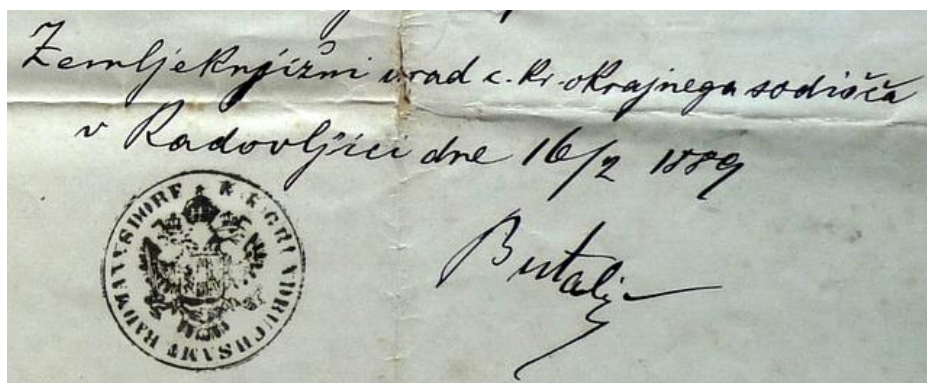 Zemljeknjižni urad c. kr. okrajnega sodišča
v Radovljici dne 16/2 1889
K. K. GRUNDBUCHSAMT RADMANNSDORF